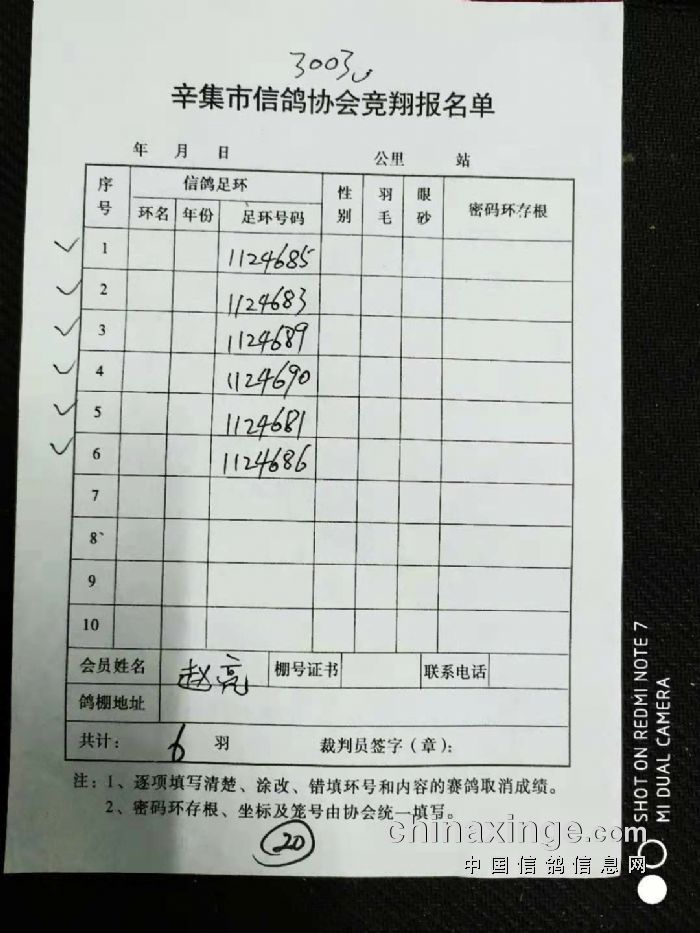 3003
辛集市信鸽协会竞翔报名单
年 月 日 公里 站
序号 信鸽足环 性别 羽毛 眼砂 密码环存根
环名 年份 足环号码
1 1124685
2 1124683
3 1124689
4 1124690
5 1124681
6 1124686
7
8
9
10
会员姓名 赵亮 棚号证书 联系电话
鸽棚地址
共计： 6 羽 裁判员签字（章）：
注：1、逐项填写清楚、涂改、错填环号和内容的赛鸽取消成绩。
2、密码环存根、坐标及笼号由协会统一填写。
20
chinaxinge.com
中国信鸽信息网
SHOT ON REDMI NOTE 7
MI DUAL CAMERA